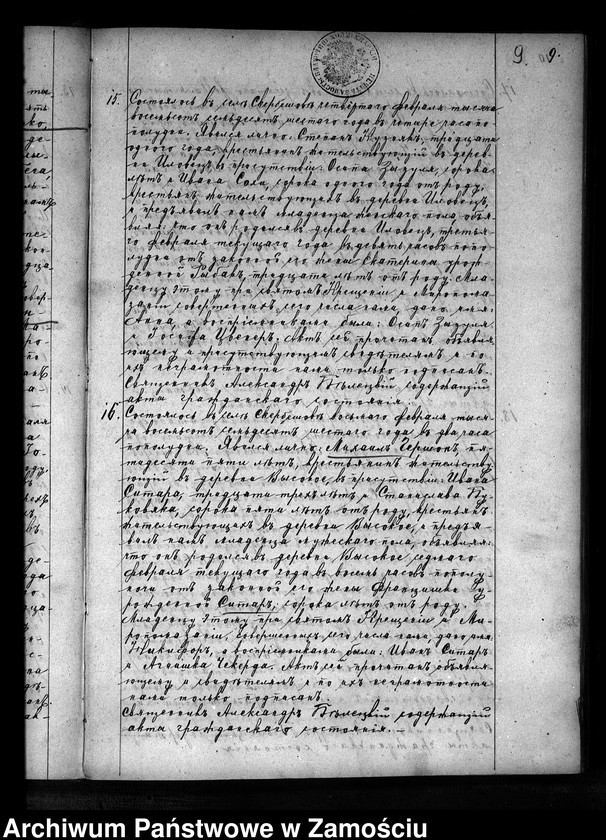 9. 9.
15. Состоялось въ селѣ Скербешовъ четвертаго февраля тысяча
восемьсотъ семьдесятъ шестаго года въ четыре часа по
полудни. Явился лично: Степанъ Кузьякъ, тридцати
одного года, крестьянинъ жительствующій въ дерев-
нѣ Иловецъ, въ присутствіи: Осипа Зизуля, сорока
лѣтъ и Ивана Сала, сорока одного года отъ роду,
крестьянъ жительствующихъ въ деревнѣ Иловецъ,
и предъявилъ намъ младенца женскаго пола, объя-
вляя: что онъ родился въ деревнѣ Иловецъ, третья-
го февраля текущаго года въ девять часовъ попо-
лудни отъ законной его жены Екатерины урож-
денной Рыбакъ, тридцати лѣтъ отъ роду. Мла-
денцу этому при святомъ Крещеніи и Миропома-
заніи совершенныхъ сего числа нами, дано имя:
Анна, а воспріемниками были: Осипъ Зизуля
и Іозефа Цвенеръ. Актъ сей прочитанъ объявля-
ющему и присутствующимъ свидѣтелямъ и по
ихъ неграмотности нами только подписанъ.
Священникъ Александръ Бѣлецкій содержащій
акты гражданскаго состоянія.
16. Состоялось въ селѣ Скербешовъ восьмаго февраля тыся-
ча восемьсотъ семьдесятъ шестаго года въ два часа
пополудни. Явился лично: Михаилъ Чермонъ, пя-
тидесяти пяти лѣтъ, крестьянинъ жительству-
ющій въ деревнѣ Высокое, въ присутствіи: Ивана
Ситара, тридцати трехъ лѣтъ и Станислава Пу-
ковяка, сорока пяти лѣтъ отъ роду, крестьянъ
жительствующихъ въ деревнѣ Высокое, и предъя-
вилъ намъ младенца мужескаго пола, объявляя:
что онъ родился въ деревнѣ Высокое седмаго
февраля текущаго года въ восемь часовъ пополу-
ночи отъ законной его жены Францишки у-
рожденной Ситаръ, сорока лѣтъ отъ роду.
Младенцу этому при святомъ Крещеніи и Ми-
ропомазаніи, совершенныхъ сего числа нами, дано имя:
Никифоръ, а воспріемниками были: Иванъ Ситаръ
и Агнешка Чекерда. Актъ сей прочитанъ объявля-
ющему и свидѣтелямъ и по ихъ неграмотности
нами только подписанъ.
Священникъ Александръ Бѣлецкій содержащій
акты гражданскаго состоянія.
Archiwum Państwowe w Zamościu